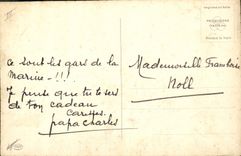 Ce sont les gars de la
Marine - !!!
Je pense que tu te sers
de ton cadeau
Caresses.
papa Charles
Mademoiselle Framboise
Noll